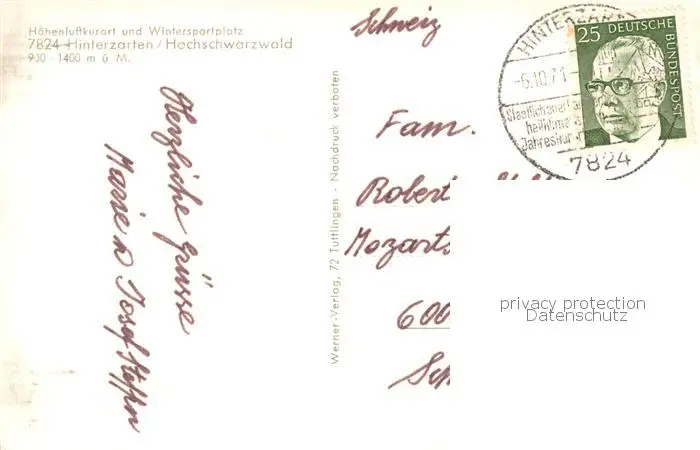 Höhenluftkurort und Wintersportplatz
7824 Hinterzarten / Hochschwarzwald
900 - 1400 m ü. M.
Herzliche Grüsse
Marie u Josef
Werner-Verlag, 72 Tuttlingen - Nachdruck verboten
Schweiz
HINTERZARTEN
-6.10.71
Staatlich anerkannter
heilklimatischer
Jahreskurort
7824
25 DEUTSCHE
BUNDESPOST
Fam.
Robert
Mozarts
600
Sch
privacy protection
Datenschutz